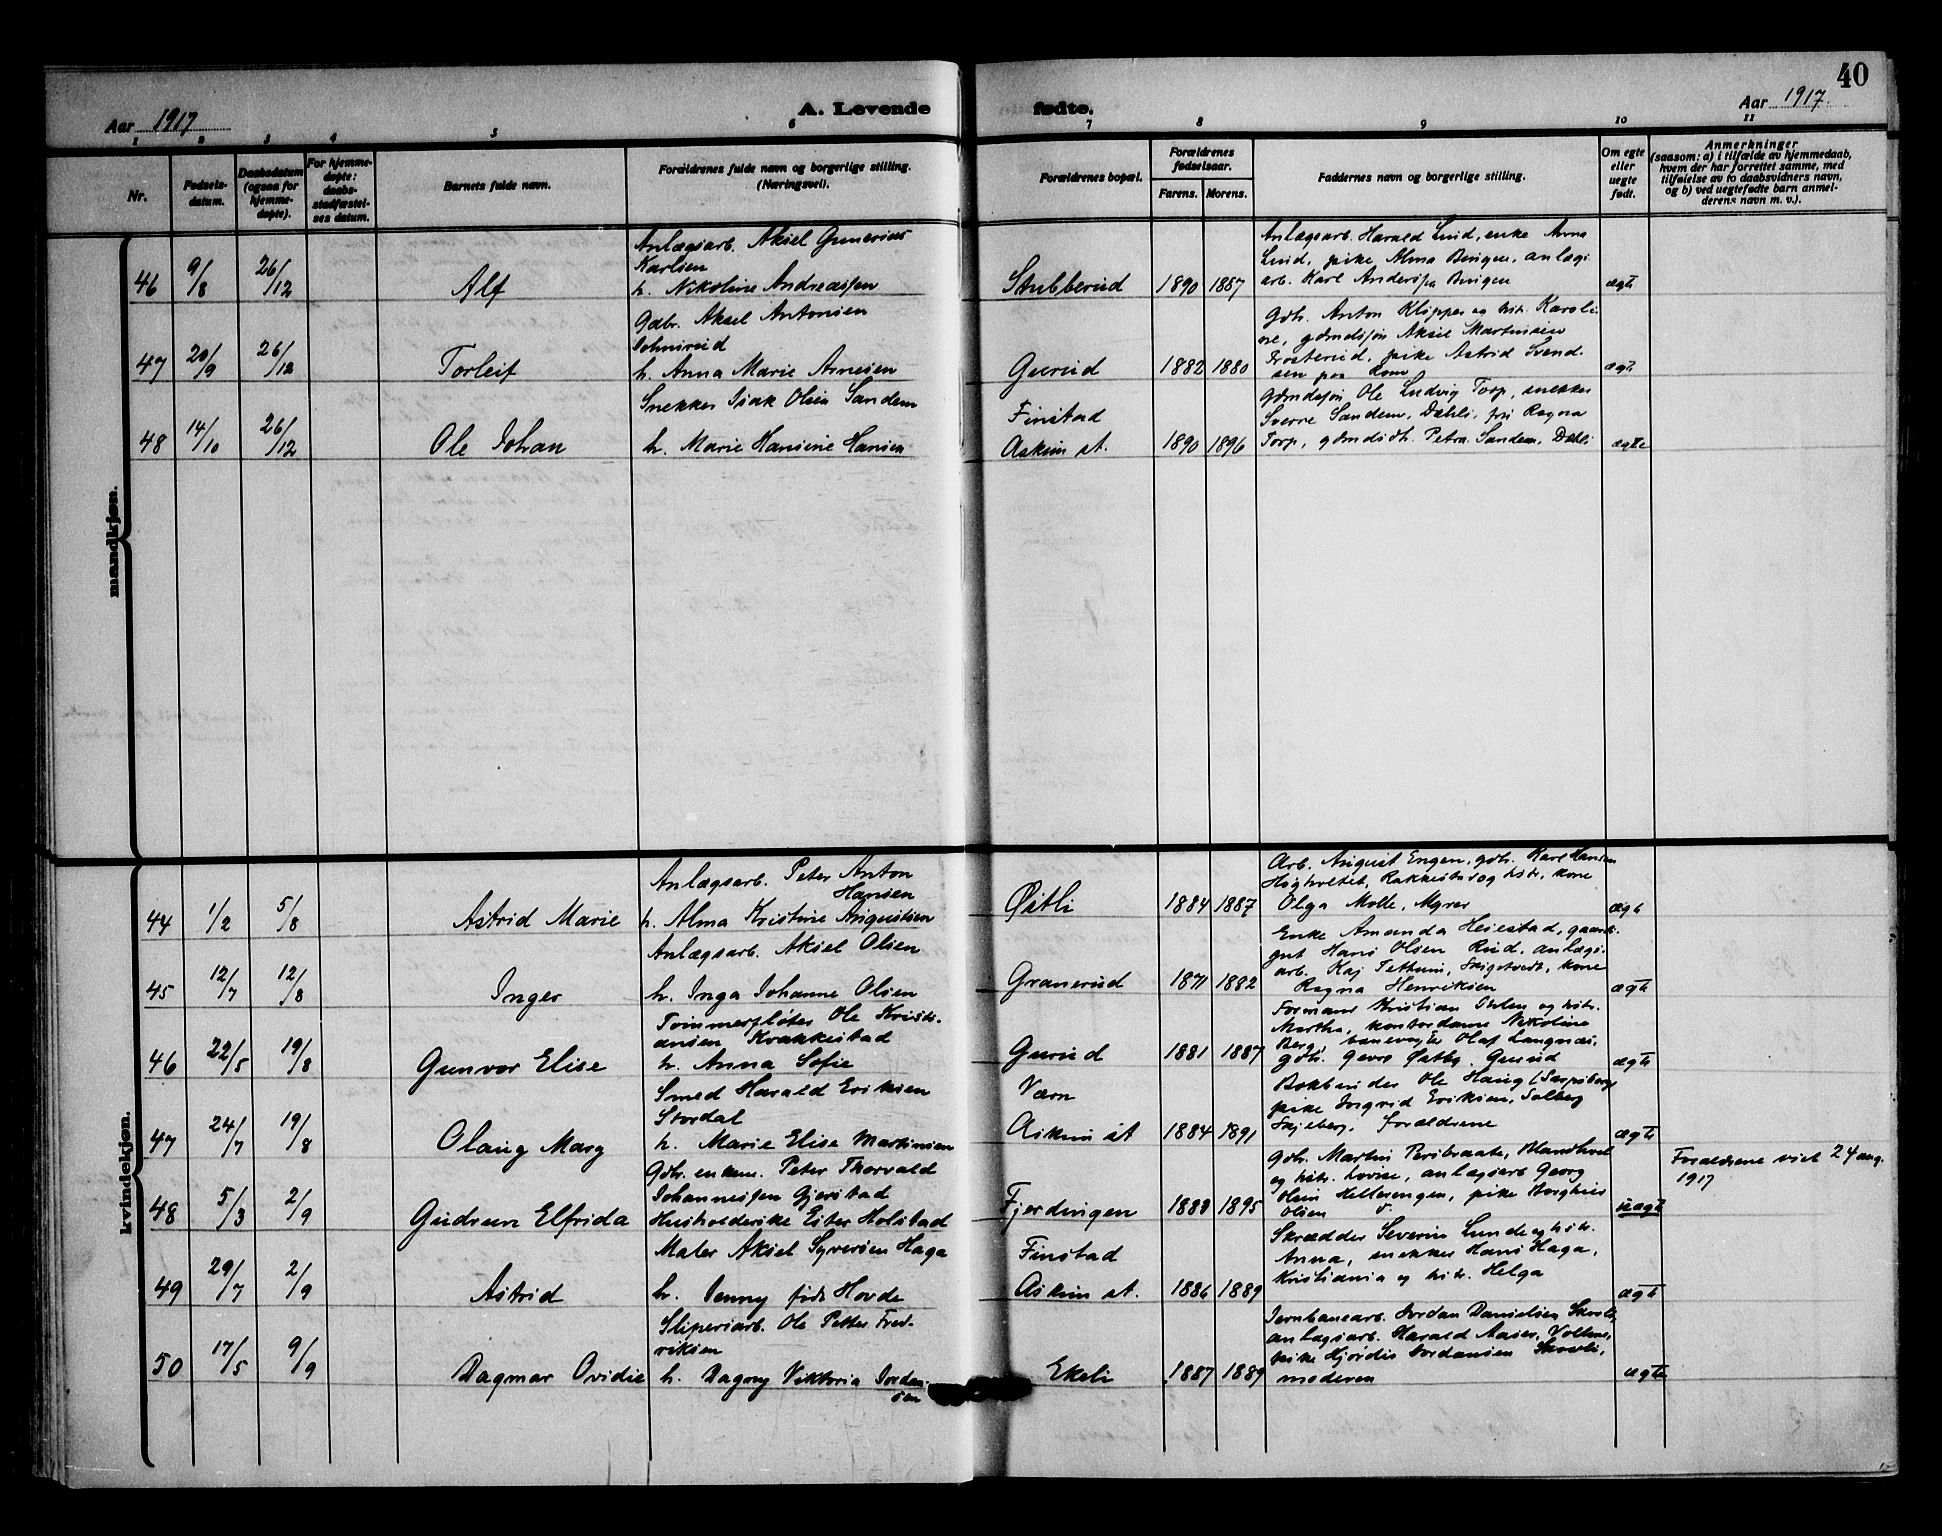 40
Aar 1917
A. Levende
fødte.
Aar 1917.
1 2 3 4 5 6 7 8 9 10 11
Nr.
Fødsels-
datum.
Daabsdatum
(ogsaa for
hjemme-
døpte).
For hjemme-
døpte:
daabs-
stadfæstel-
ses datum.
Barnets fulde navn.
Forældrenes fulde navn og borgerlige stilling.
(Næringsvei).
Forældrenes bopæl.
Forældrenes
fødselsaar.
Farens. Morens.
Faddernes navn og borgerlige stilling.
Om egte
eller
uegte
født.
Anmerkninger
(saasom: a) i tilfælde av hjemmedaab,
hvem der har forrettet samme, med
tilføielse av to daabsvidners navn,
og b) ved uegtefødte barn anmel-
derens navn m. v.).
mandkjøn.
46 9/8 26/12 Alf
Anlægsarb. Aksel Gunerius
Karlsen
h. Nikoline Andreassen
Stubberud 1890 1887
Anlægsarb. Harald Lund, enke Anna
Lund, pike Alma Bingen, anlægs
arb. Karl Anderss Bingen
ægte
47 20/9 26/12 Torleif
Gdbr. Aksel Antonsen
Johnsrud
h. Anna Marie Arnesen
Gurud 1882 1880
Gdbr. Anton Klypper og hstr. Karoli-
ne, gdmdssøn Aksel Martinsen
Frosterud, pike Astrid Svend-
sen paa Rom
ægte
48 14/10 26/12 Ole Johan
Snekker Isak Olsen Sandem
h. Marie Hansine Hansen
Finstad
Askim st. 1890 1896
gdmdssøn Ole Ludvig Torp, snekker
Sverre Sandem, Dæhli, frk Ragna
Torp, gdmdsdtr. Petra Sandem, Dæhli
ægte
kvindekjøn.
44 1/2 5/8 Astrid Marie
Anlægsarb. Peter Anton
Hansen
h. Alma Kristine Augustsen
Østli 1884 1887
Arb. August Engen, gdbr. Karl Hansen
Høgholtet, Rakkestad og hstr., kone
Olga Molle, Myrer
ægte
45 12/7 12/8 Inger
Anlægsarb. Aksel Olsen
h. Inga Johanne Olsen
Granerud 1871 1882
Enke Amanda Heiestad, gaards-
gut Hans Olsen Rud, anlægs-
arb. Kaj Tethum, kone
Ragna Henriksen
ægte
46 22/5 19/8 Gunvor Elise
Tømmerfløter Ole Kristi-
ansen Krakkestad
h. Anna Sofie
Gurud 1881 1887
Formann Kristian Ohlen og hstr.
Martha, kontordame Nikoline
Berg, banevogter Olaf Langnæs,
gdbr. Georg Østby, Gurud
ægte
47 24/7 19/8 Olaug Mary
Smed Harald Eriksen
Stordal
h. Marie Elise Martinsen
Værn
Askim st 1884 1891
Bokbinder Ole Haug (Sarpsborg)
pike Ingrid Eriksen, Solberg
Skjeberg, Forældrene
ægte
48 5/3 2/9 Gudrun Elfrida
Gdbr. enkem. Peter Thorvald
Johannessen Gjerstad
Husholderske Ester Holstad
Fjerdingen 1888 1895
Gdbr. Martin
og hstr. Lovise, anlægsarb Georg
Olsen Hellerengen, pike Borghild
Olsen
uægte
Forældrene viet 24 aug.
1917
49 29/7 2/9 Astrid
Maler Aksel Syversen Haga
h. Jenny født Hovde
Finstad
Askim st. 1886 1889
Skrædder Severin Lunde og hstr.
Anna, snekker Hans Haga,
Kristiania og hstr. Helga
ægte
50 17/5 9/9 Dagmar Ovidie
Sliperiarb. Ole Petter Fred-
riksen
h. Dagny Viktoria Jordan-
sen
Ekeli 1887 1889
Jernbanearb. Jordan Danielsen Skovli,
anlægsarb. Harald Aasen, Vollene,
pike Hjørdis Jordansen Skovli,
moderen
ægte